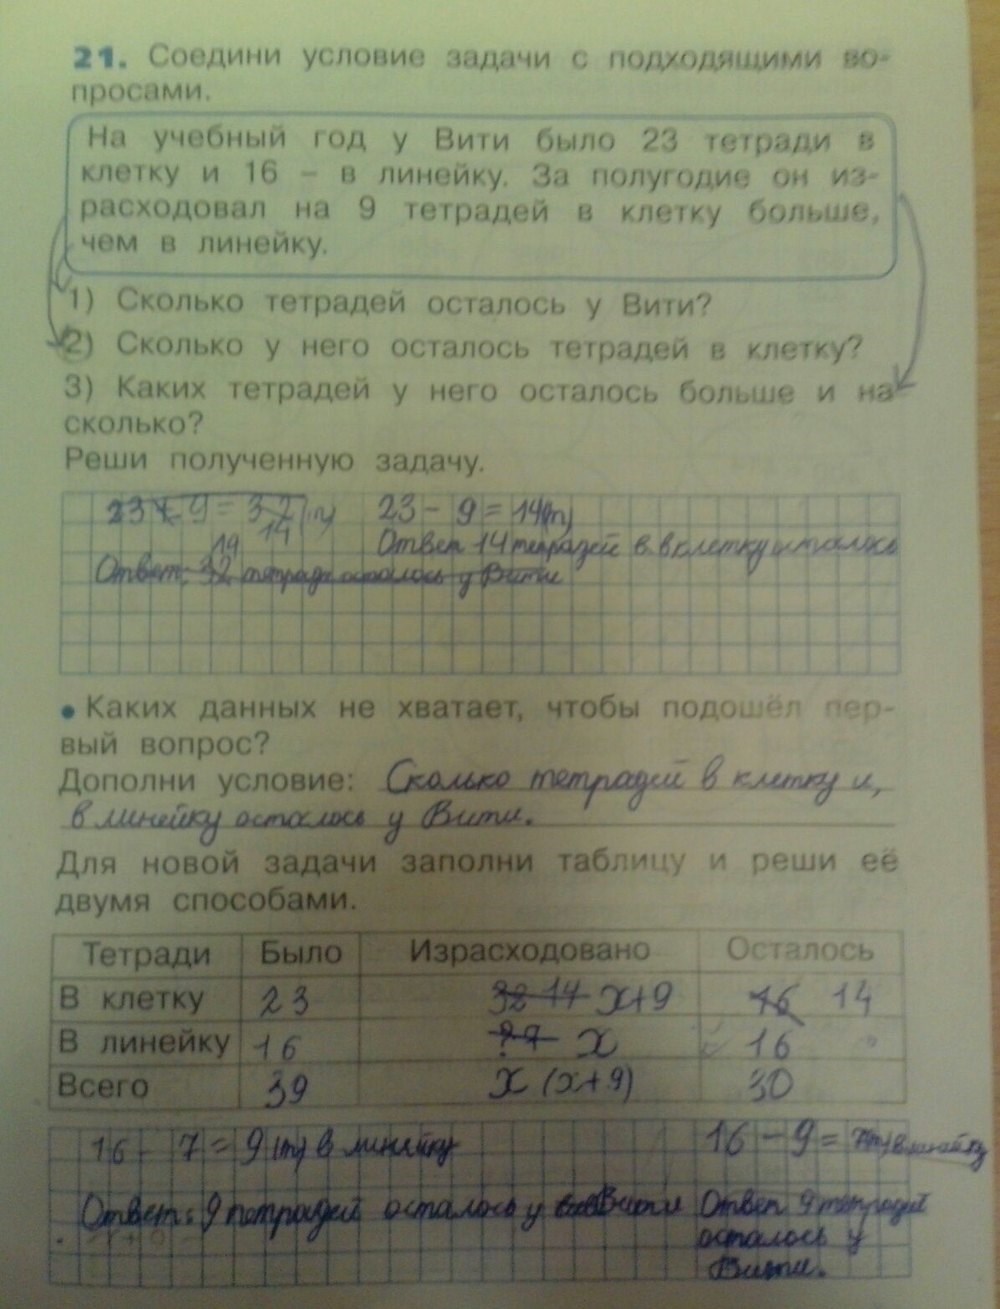 21. Соедини условие задачи с подходящими во-
просами.
На учебный год у Вити было 23 тетради в
клетку и 16 – в линейку. За полугодие он из-
расходовал на 9 тетрадей в клетку больше,
чем в линейку.
1) Сколько тетрадей осталось у Вити?
2) Сколько у него осталось тетрадей в клетку?
3) Каких тетрадей у него осталось больше и на
сколько?
Реши полученную задачу.
23 + 9 = 32 (т) 23 - 9 = 14(т)
14
19 Ответ 14 тетрадей в вклетку осталось
Ответ: 32 тетради осталось у Вити
• Каких данных не хватает, чтобы подошёл пер-
вый вопрос?
Дополни условие: Сколько тетрадей в клетку и,
в линейку осталось у Вити.
Для новой задачи заполни таблицу и реши её
двумя способами.
Тетради Было Израсходовано Осталось
В клетку 23 32 14 х+9 16 14
В линейку 16 х 16
Всего 39 х (х+9) 30
16 - 7 = 9 (т) в линейку 16 - 9 = 7(т) в линейку
Ответ: 9 тетрадей осталось у Вити Ответ 9 тетрадей
осталось у
Вити.